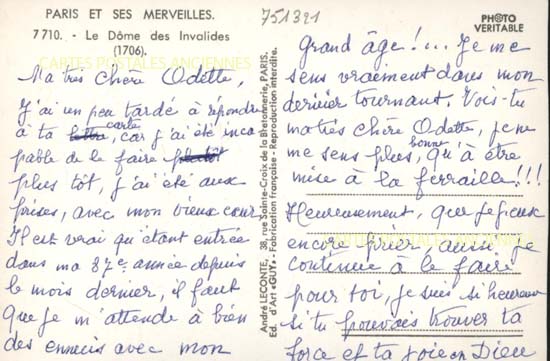 PARIS ET SES MERVEILLES.
7710. - Le Dôme des Invalides
(1706).
CARTES POSTALES ANCIENNES
751321
PHOTO
VERITABLE
Ma très chère Odette,
J'ai un peu tardé à répondre
à ta lettre carte, car j'ai été inca
pable de le faire plutôt
plus tôt, j'ai été aux
prises, avec mon vieux cœur
Il est vrai qu'étant entrée
dans ma 87e année depuis
le mois dernier, il faut
que je m'attende à bien
des ennuis avec mon
André LECONTE, 38, rue Sainte-Croix de la Bretonnerie, PARIS.
Ed. d'Art «GUY» - Fabrication française - Reproduction interdite.
Grand âge !... Je me
sens vraiment dans mon
dernier tournant. Vois-tu
ma très chère Odette, je ne
me sens plus bonne, qu'à être
mise à la ferraille !!!
Heureusement, que je peux
encore prier, aussi je
continue à le faire
pour toi, je suis si heureuse
si tu pouvais trouver ta
force et ta joie en Dieu